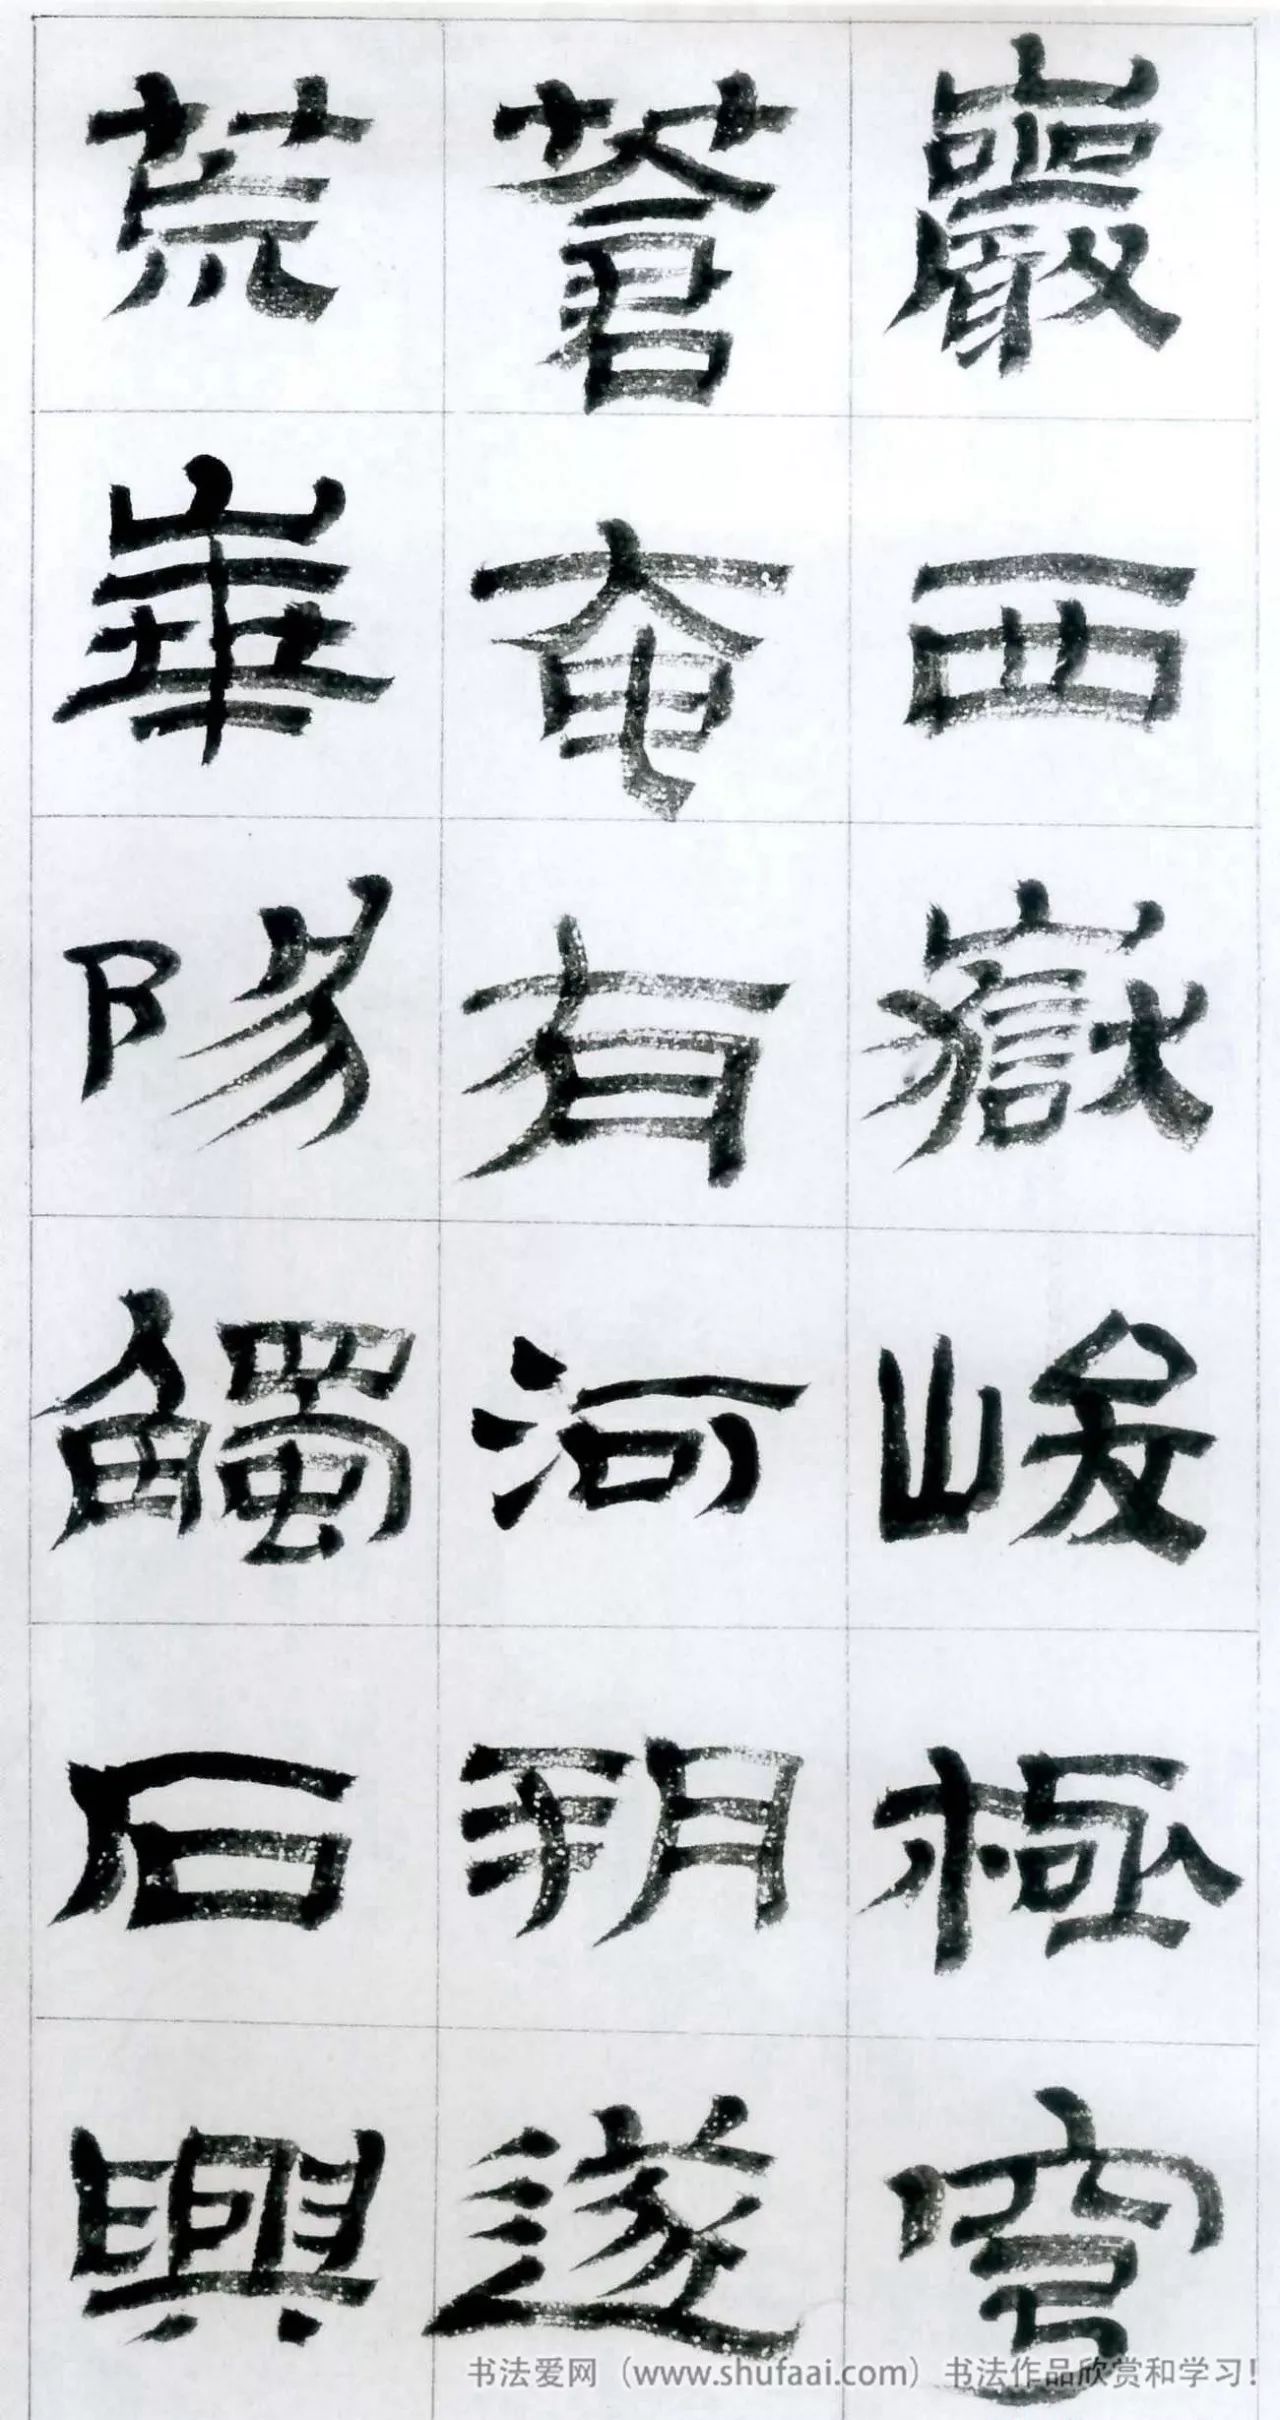 巖西嶽峻極穹
蒼奄有河朔遂
荒崋陽觸石興
书法爱网（www.shufaai.com）书法作品欣赏和学习！